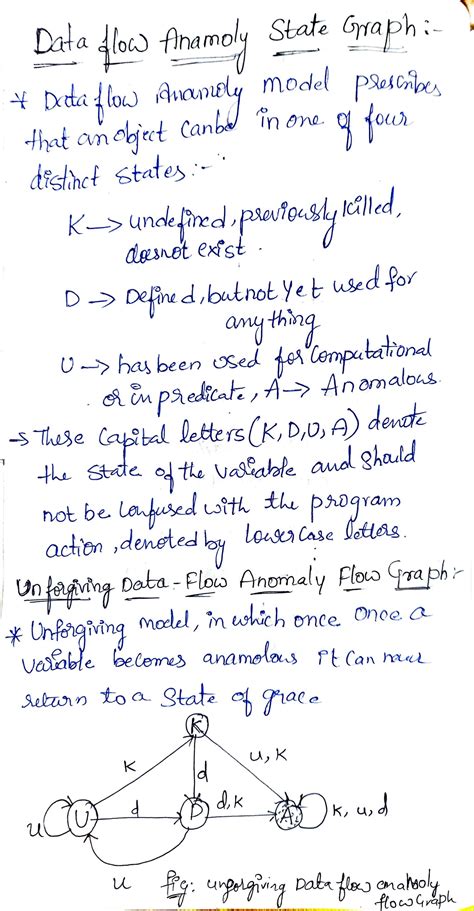 Data flow Anamoly State Graph:-
* Data flow Anamoly model prescribes
that an object can be in one of four
distinct states:-
K → undefined, previously killed,
does not exist.
D → Defined, but not yet used for
anything
U → has been used for computational
or in predicate, A → Anomalous.
→ These Capital letters (K, D, U, A) denote
the state of the variable and should
not be confused with the program
action, denoted by lower case letters.
Unforgiving Data-Flow Anomaly Flow Graph:-
* Unforgiving model, in which once once a
variable becomes anamolous it can
return to a state of grace
K
K
d
u, K
U
d
D
d, k
A
k, u, d
u
u
fig: unforgiving Data flow
flow Graph